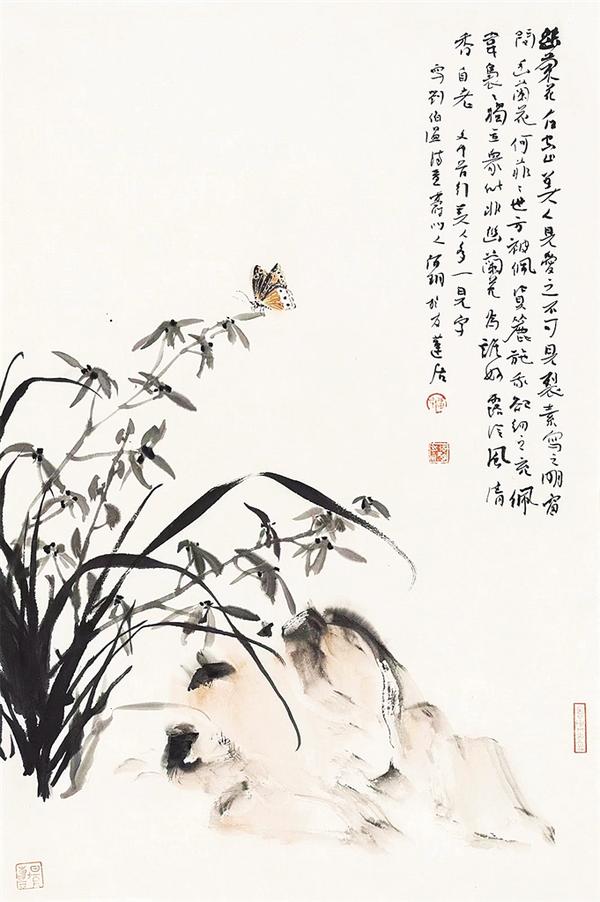 幽蘭花在空山美人見愛之不可見裂素寫之明窗
間幽蘭花何菲〻世方被佩資簏施我欲紉之充佩
韋裊〻獨立衆所非幽蘭花為誰好露冷風清
香自老 文中首行美人多一見字
寫劉伯溫詩意